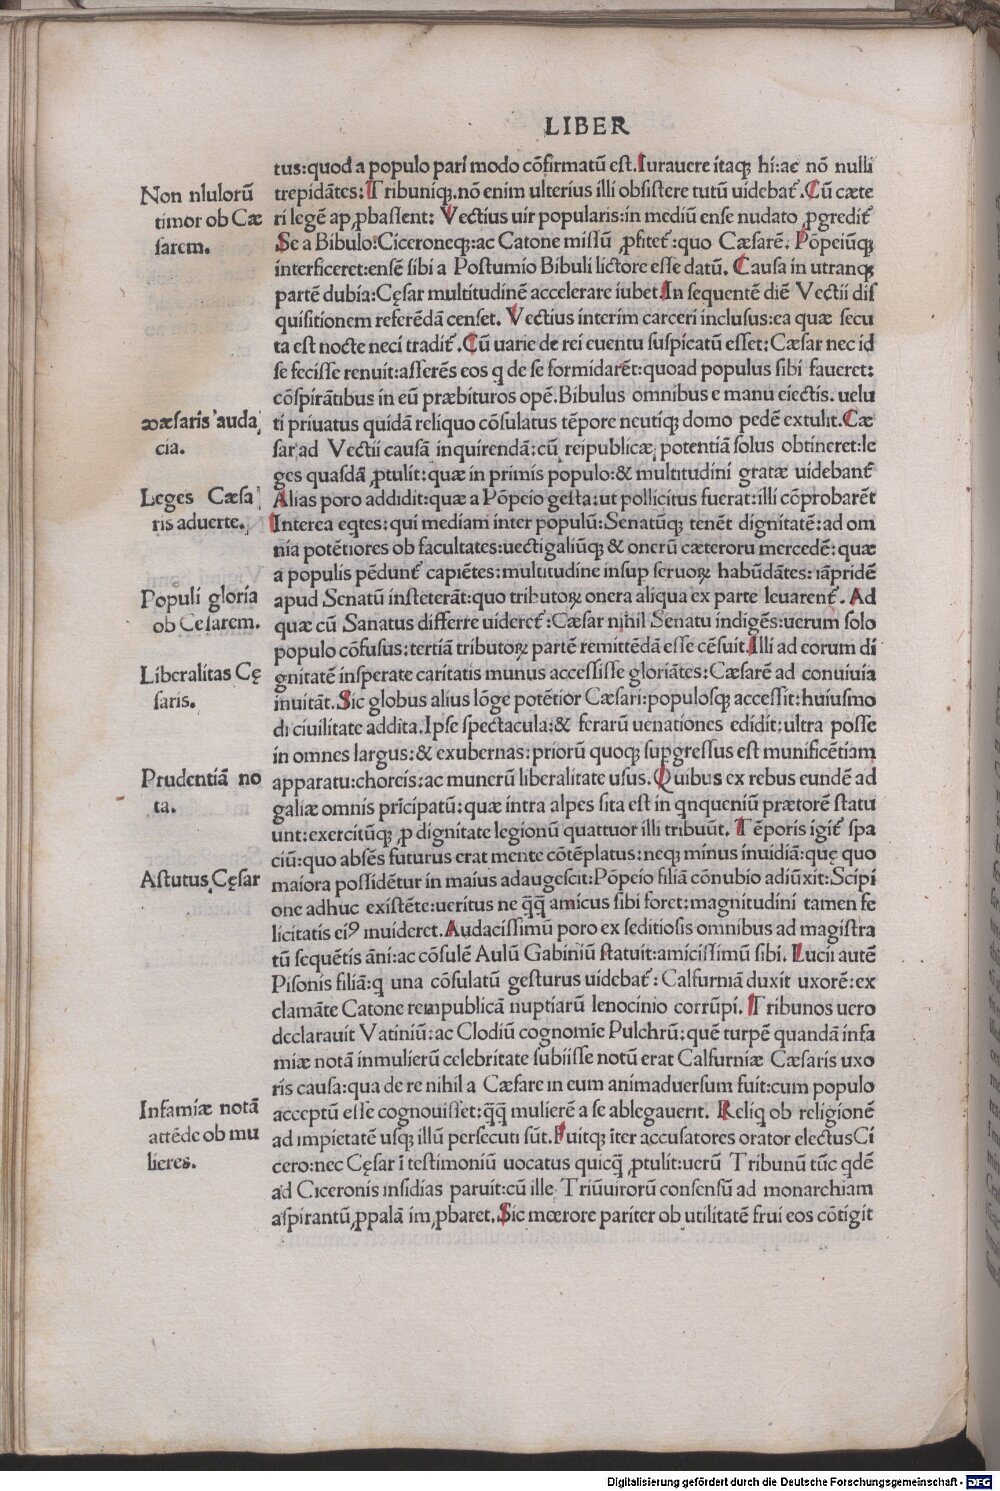 LIBER
tus:quod a populo pari modo cõfirmatũ est.Iurauere itaqꝫ hi:ac nõ nulli
trepidãtes:Tribuniqꝫ.nõ enim ulterius illi obsistere tutũ uidebat᷑.Cũ cæte
ri legẽ apꝓbassent: Vectius uir popularis:in mediũ ense nudato ꝓgredit᷑
Se a Bibulo:Ciceroneqꝫ:ac Catone missũ ꝓfitet᷑:quo Cæsarẽ. Põpeiũqꝫ
interficeret:ensẽ sibi a Postumio Bibuli lictore esse datũ. Causa in utranqꝫ
partẽ dubia:Cęsar multitudinẽ accelerare iubet.In sequentẽ diẽ Vectii dis
quisitionem referẽdã censet. Vectius interim carceri inclusus:ea quæ secu
ta est nocte neci tradit᷑.Cũ uarie de rei euentu suspicatũ esset:Cæsar nec id
se fecisse renuit:asserẽs eos q de se formidarẽt:quoad populus sibi faueret:
cõspirãtibus in eũ præbituros opẽ.Bibulus omnibus e manu eiectis. uelu
ti priuatus quidã reliquo cõsulatus tẽpore neutiqꝫ domo pedẽ extulit.Cæ
sar ad Vectii causã inquirendã:cũ reipublicæ potentiã solus obtineret:le
ges quasdã ꝓtulit:quæ in primis populo:& multitudini gratæ uidebant᷑
Alias poro addidit:quæ a Põpeio gesta:ut pollicitus fuerat:illi cõprobarẽt
Interea eqtes:qui mediam inter populũ:Senatũqꝫ tenẽt dignitatẽ:ad om
nia potẽtiores ob facultates:uectigaliũqꝫ & onerũ cæteroru mercedẽ:quæ
a populis pẽdunt᷑ capiẽtes:multitudine insup seruoꝝ habũdãtes:iãpridẽ
apud Senatũ insteterãt:quo tributoꝝ onera aliqua ex parte leuarent᷑. Ad
quæ cũ Sanatus differre uideret᷑:Cæsar nihil Senatu indigẽs:uerum solo
populo cõfusus:tertiã tributoꝝ partẽ remittẽdã esse cẽsuit.Illi ad eorum di
gnitatẽ insperate caritatis munus accessisse gloriãtes:Cæsarẽ ad conuiuia
inuitãt.Sic globus alius lõge potẽtior Cæsari:populosqꝫ accessit:huiusmo
di ciuilitate addita.Ipse spectacula:& ferarũ uenationes edidit:ultra posse
in omnes largus:& exubernas:priorũ quoqꝫ supgressus est munificẽtiam
apparatu:choreis:ac munerũ liberalitate usus.Quibus ex rebus eundẽ ad
galiæ omnis pricipatũ:quæ intra alpes sita est in qnqueniũ prætorẽ statu
unt:exercitũqꝫ ꝓ dignitate legionũ quattuor illi tribuũt. Tẽporis igit᷑ spa
ciũ:quo absẽs futurus erat mente cõtẽplatus:neqꝫ minus inuidiã:quę quo
maiora possidẽtur in maius adaugescit:Põpeio filiã cõnubio adiũxit:Scipi
one adhuc existẽte:ueritus ne q̃q̃ amicus sibi foret:magnitudini tamen fe
licitatis eiꝰ inuideret.Audacissimũ poro ex seditiosis omnibus ad magistra
tũ sequẽtis ãni:ac cõsulẽ Aulũ Gabiniũ statuit:amicissimũ sibi. Lucii autẽ
Pisonis filiã:q una cõsulatũ gesturus uidebat᷑: Calfurniã duxit uxorẽ:ex
clamãte Catone rempublicã nuptiarũ lenocinio corrũpi. Tribunos uero
declarauit Vatiniũ:ac Clodiũ cognomĩe Pulchrũ:quẽ turpẽ quandã infa
miæ notã inmulierũ celebritate subiisse notũ erat Calfurniæ Cæsaris uxo
ris causa:qua de re nihil a Cæsare in eum animaduersum fuit:cum populo
acceptũ esse cognouisset:q̃q̃ mulierẽ a se ablegauerit. Reliq ob religionẽ
ad impietatẽ usqꝫ illũ persecuti sũt.Fuitqꝫ ĩter accusatores orator electus Ci
cero:nec Cęsar ĩ testimoniũ uocatus quicq̃ ꝓtulit:uerũ Tribunũ tũc qdẽ
ad Ciceronis insidias paruit:cũ ille Triũuirorũ consensũ ad monarchiam
aspirantũ ꝓpalã imꝓbaret.Sic mœrore pariter ob utilitatẽ frui eos cõtigit
Non nlulorũ
timor ob Cæ
sarem.
xæsaris auda
cia.
Leges Cæsa
ris aduerte.
Populi gloria
ob Cesarem.
Liberalitas Cę
saris.
Prudentiã no
ta.
Astutus Cęsar
Infamiæ notã
attẽde ob mu
lieres.
Digitalisierung gefördert durch die Deutsche Forschungsgemeinschaft - DFG